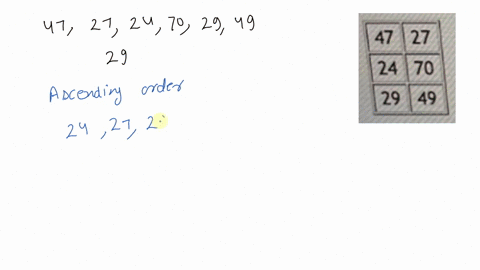 47, 27, 24, 70, 29, 49
29
Ascending order
24, 27, 2
47 27
24 70
29 49